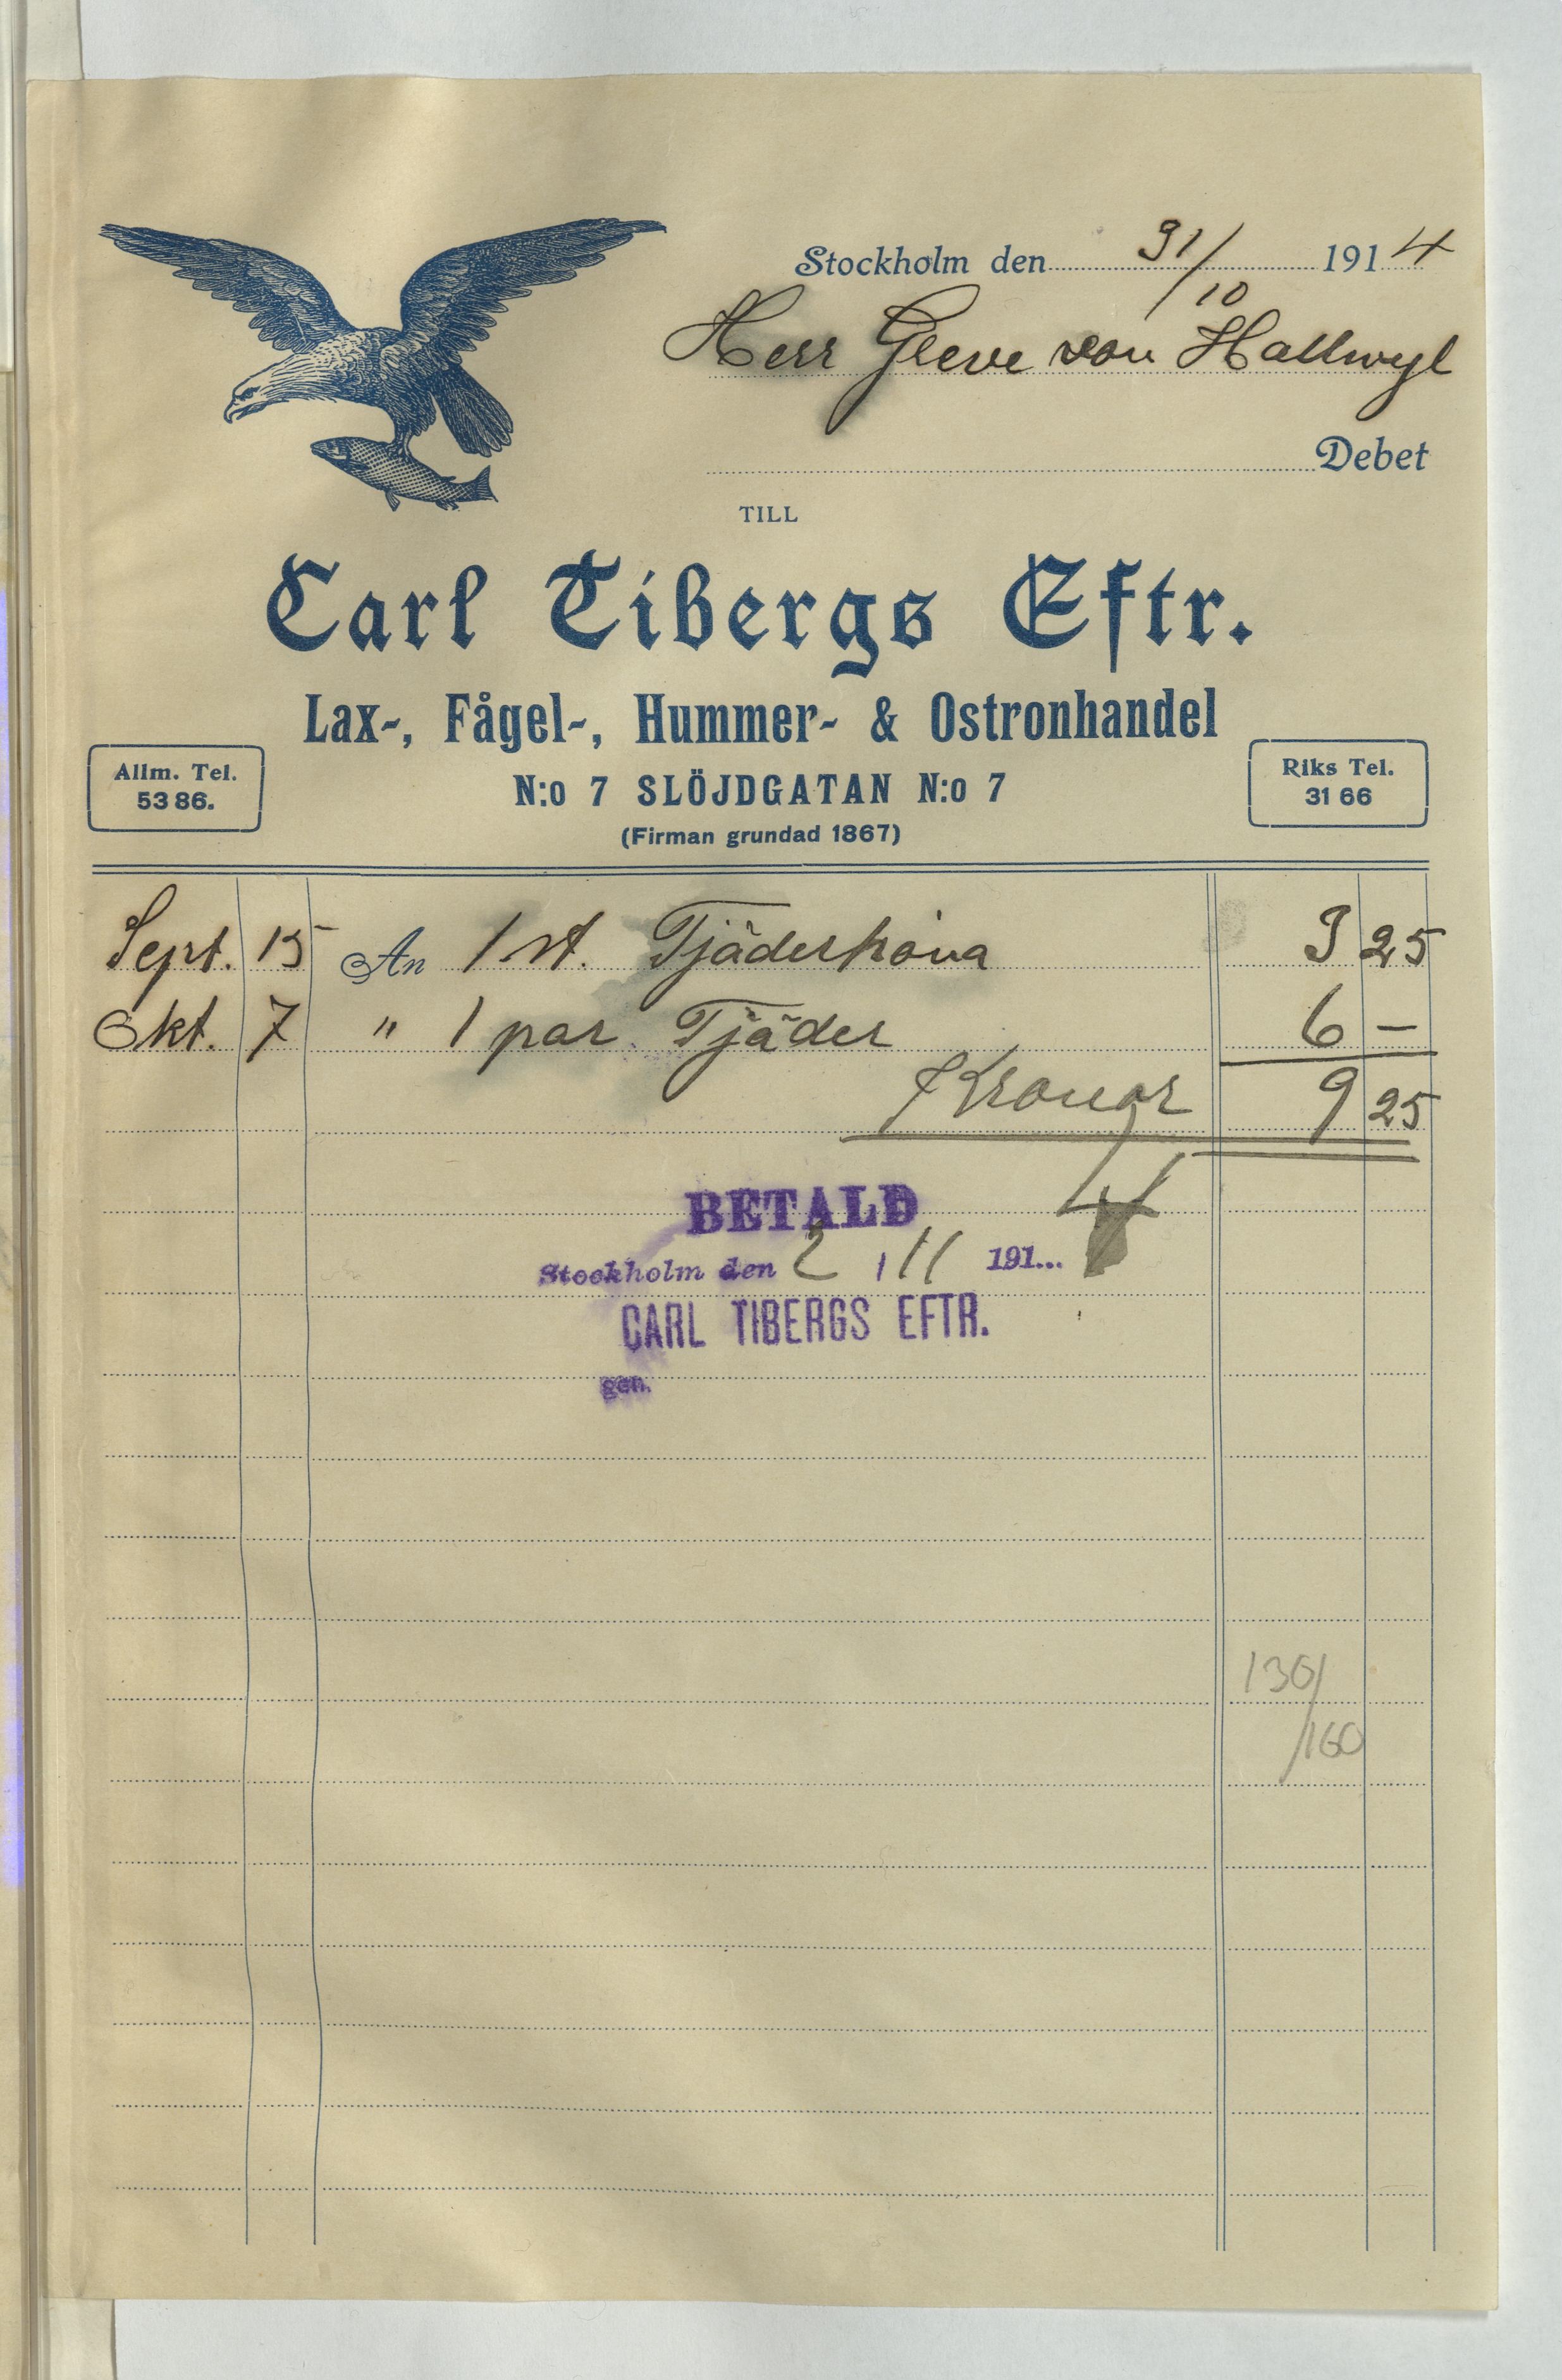 Stockholm den 31/10 1914
Herr Greve von Hallwyl
Debet
TILL
Carl Tibergs Eftr.
Lax-, Fågel-, Hummer- & Ostronhandel
Allm. Tel.
53 86.
N:o 7 SLÖJDGATAN N:o 7
Riks Tel.
31 66
(Firman grundad 1867)
Sept. 15 An 1 st. Tjäderhöna 3 25
Okt. 7 " 1 par Tjäder 6 —
Kronor 9 25
BETALD
Stockholm den 2 / 11 191... 4
CARL TIBERGS EFTR.
gen.
130/
160